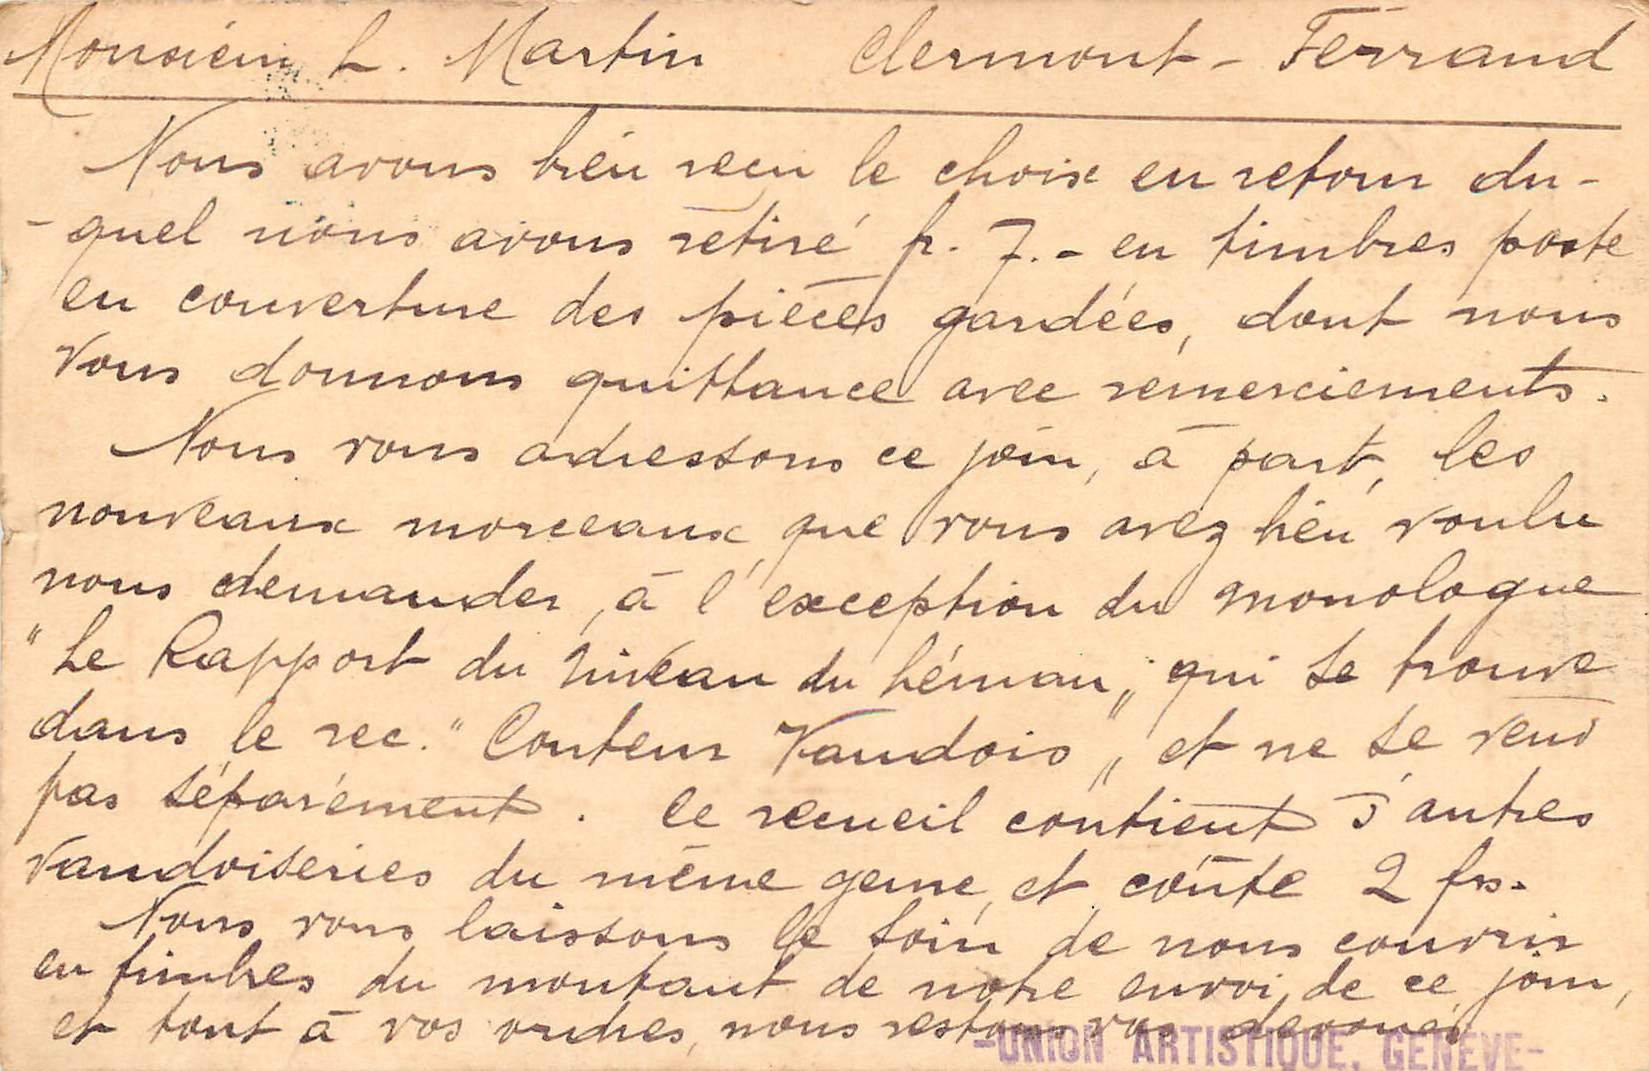 Monsieur L. Martin Clermont-Ferrand
Nous avons bien reçu le choix en retour du-
-quel nous avons retiré fr. 7.- en timbres poste
en couverture des pièces gardées, dont nous
vous donnons quittance avec remerciements.
Nous vous adressons ce jour, à part, les
nouveaux morceaux que vous avez bien voulu
nous demander, à l'exception du monologue
"Le Rapport du niveau du Léman" qui se trouve
dans le rec. "Conteur Vaudois" et ne se vend
pas séparément. Ce recueil contient d'autres
vaudoiseries du même genre, et coûte 2 frs.
Nous vous laissons le soin de nous couvrir
en timbres du montant de notre envoi de ce jour,
et tout à vos ordres, nous restons vos dévoués
-UNION ARTISTIQUE, GENÈVE-